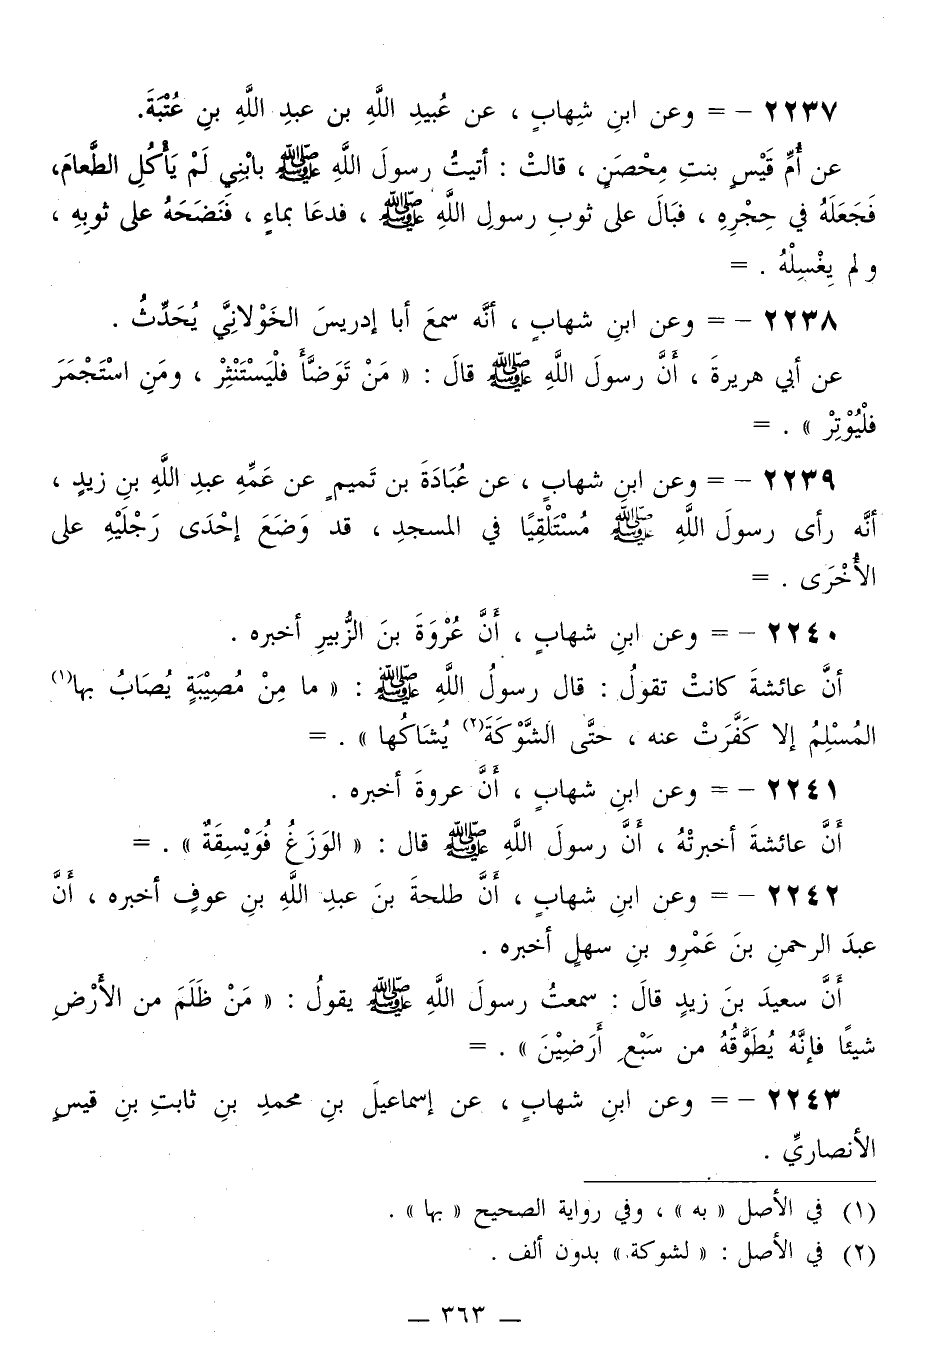 ٢٢٣٧ - = وعن ابنِ شِهابٍ ، عن عُبيدِ اللَّهِ بن عبدِ اللَّهِ بنِ عُتْبَةَ.
عن أُمِّ قَيْسٍ بنتِ مِحْصَنٍ ، قالتْ : أتيتُ رسولَ اللَّهِ ﷺ بابْنِي لَمْ يَأْكُلِ الطَّعامَ،
فَجَعَلَهُ في حِجْرِهِ ، فَبَالَ على ثوبِ رسولِ اللَّهِ ﷺ ، فدعَا بماءٍ ، فَنَضَحَهُ على ثوبِهِ ،
و لم يِغْسِلْهُ . =
٢٢٣٨ - = وعن ابنِ شهابٍ ، أنَّه سمعَ أبا إدريسَ الخَوْلانيَّ يُحَدِّثُ .
عن أبي هريرةَ ، أَنَّ رسولَ اللَّهِ ﷺ قالَ : « مَنْ تَوَضَّأَ فلْيَسْتَنْثِرْ ، ومَنِ اسْتَجْمَرَ
فلْيُوْتِرْ » . =
٢٢٣٩ - = وعن ابنِ شهابٍ ، عن عُبَادَةَ بن تَميمٍ عن عَمِّهِ عبدِ اللَّهِ بنِ زيدٍ ،
أنَّه رأى رسولَ اللَّهِ ﷺ مُسْتَلْقِيًا في المسجدِ ، قد وَضَعَ إحْدَى رَجْلَيْهِ على
الأُخْرَى . =
٢٢٤٠ - = وعن ابنِ شهابٍ ، أَنَّ عُرْوَةَ بنَ الزُّبيرِ أخبره .
أنَّ عائشةَ كانتْ تقولُ : قال رسولُ اللَّهِ ﷺ : « ما مِنْ مُصِيْبَةٍ يُصَابُ بها(١)
المُسْلِمُ إلا كَفَّرَتْ عنه ، حتَّى الشَّوْكَةَ(٢) يُشَاكُها » . =
٢٢٤١ - = وعن ابنِ شهابٍ ، أَنَّ عروةَ أخبره .
أَنَّ عائشةَ أخبرتْهُ ، أَنَّ رسولَ اللَّهِ ﷺ قال : « الوَزَغُ فُوَيْسِقَةٌ » . =
٢٢٤٢ - = وعن ابنِ شهابٍ ، أَنَّ طلحةَ بنَ عبدِ اللَّهِ بنِ عوفٍ أخبره ، أَنَّ
عبدَ الرحمنِ بنَ عَمْرِو بنِ سهلٍ أخبره .
أَنَّ سعيدَ بنَ زيدٍ قالَ : سمعتُ رسولَ اللَّهِ ﷺ يقولُ : « مَنْ ظَلَمَ من الأَرْضِ
شيئًا فإنَّهُ يُطَوَّقُهُ من سَبْعِ أَرَضِيْنَ » . =
٢٢٤٣ - = وعن ابنِ شهابٍ ، عن إسماعيلَ بنِ محمدِ بنِ ثابتِ بنِ قيسٍ
الأنصاريِّ .
(١) في الأصل « به » ، وفي رواية الصحيح « بها » .
(٢) في الأصل : « لشوكة » بدون ألف .
— ٣٦٣ —